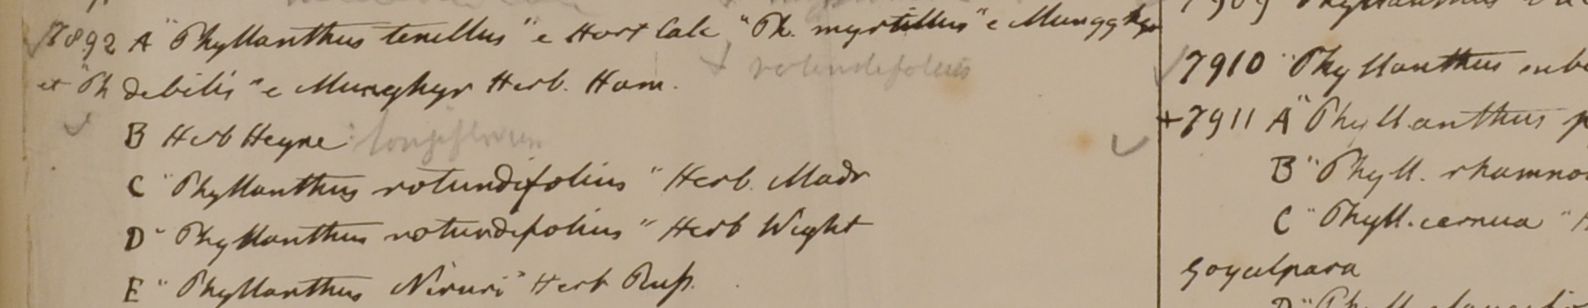 7892 A "Phyllanthus tenellus" e Hort Calc "Ph. myrtillus" e Mungghyr
et "Ph debilis" e Munghyr Herb. Ham.
rotundifolius
B Herb Heyne
C "Phyllanthus rotundifolius" Herb. Madr
D "Phyllanthus rotundifolius" Herb Wight
E "Phyllanthus Niruri" Herb Russ.
7910 "Phyllanthus
+7911 A "Phyllanthus
B "Phyll.
C "Phyll. cernua"
Goyalpara